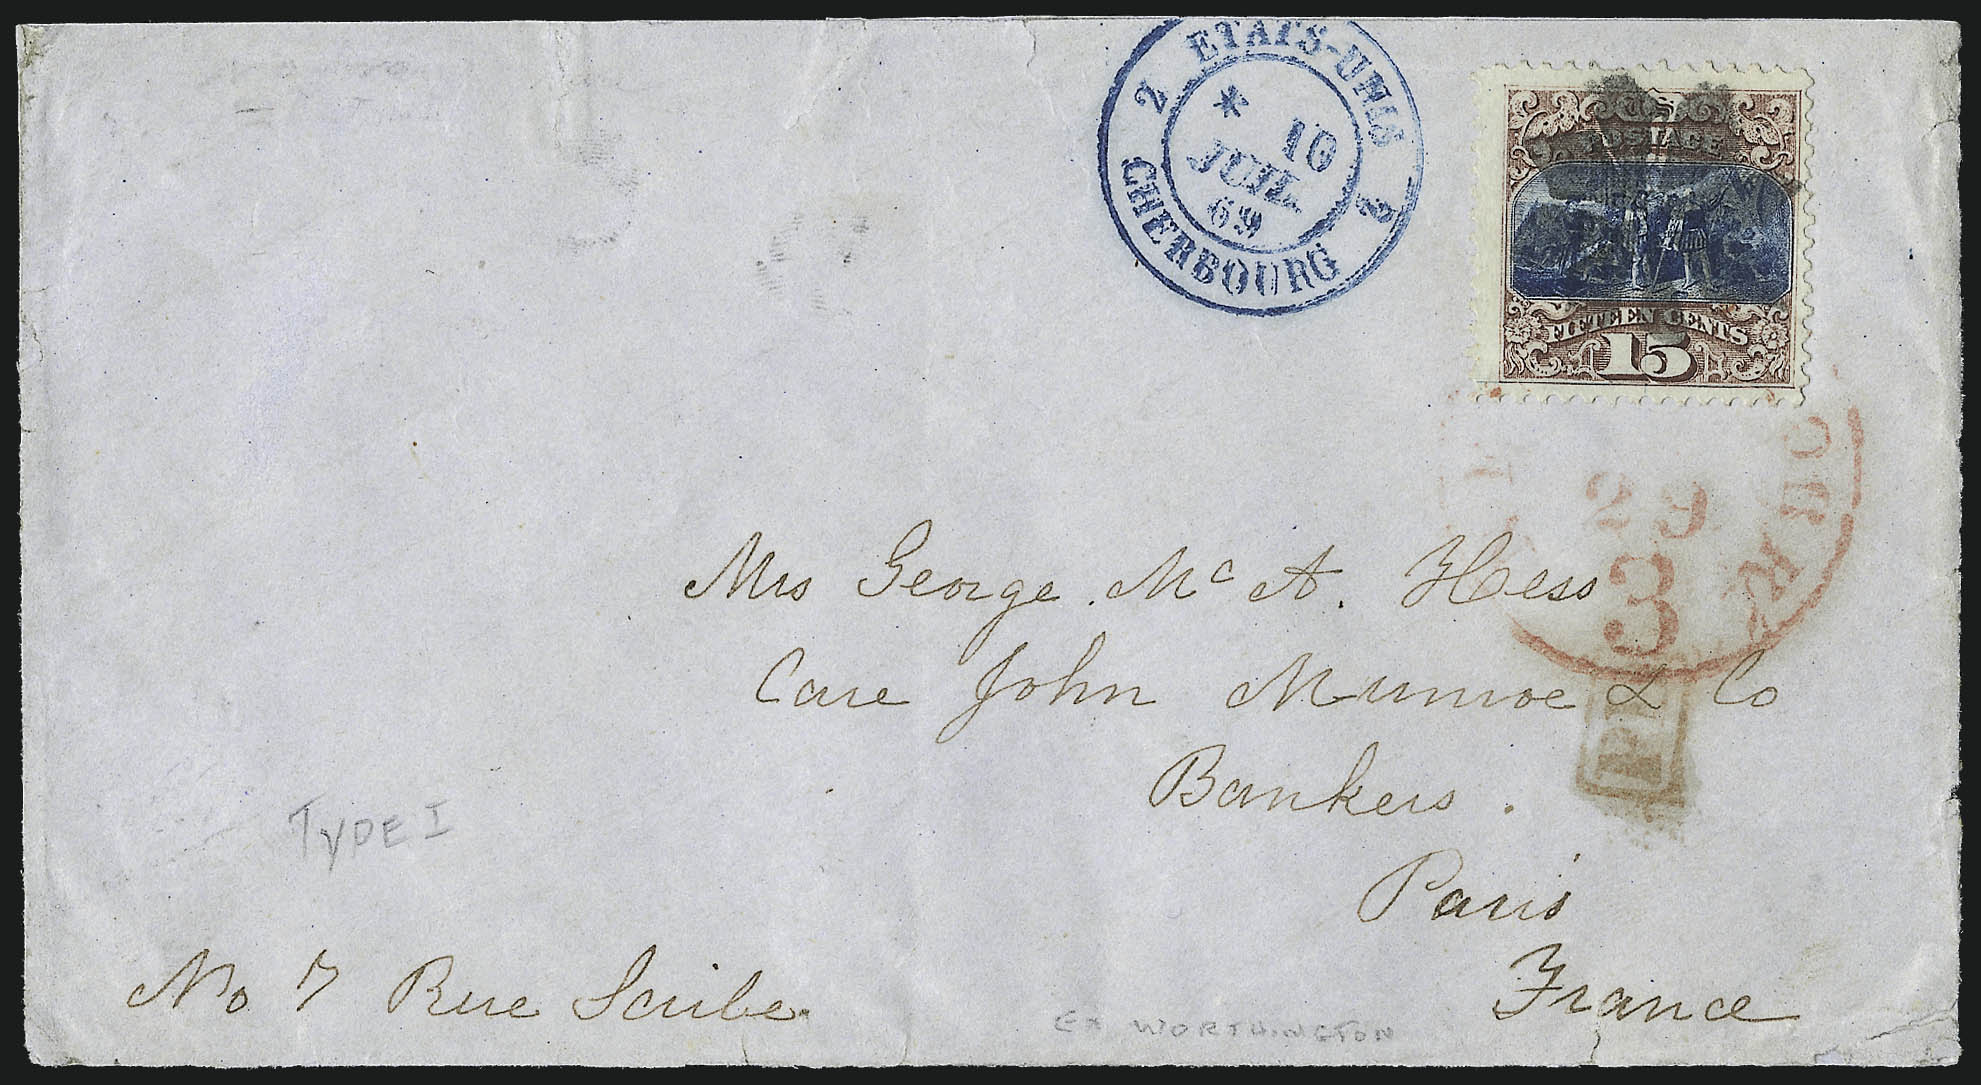 2 ETATS-UNIS 2
* 10
JUIL.
69
CHERBOURG
U S
POSTAGE
FIFTEEN CENTS
15
29
3
Mrs George. Mc A. Hess
Care John Munroe & Co
Bankers.
Paris
France
TYPE I
No 7 Rue Scribe.
EX WORTHINGTON